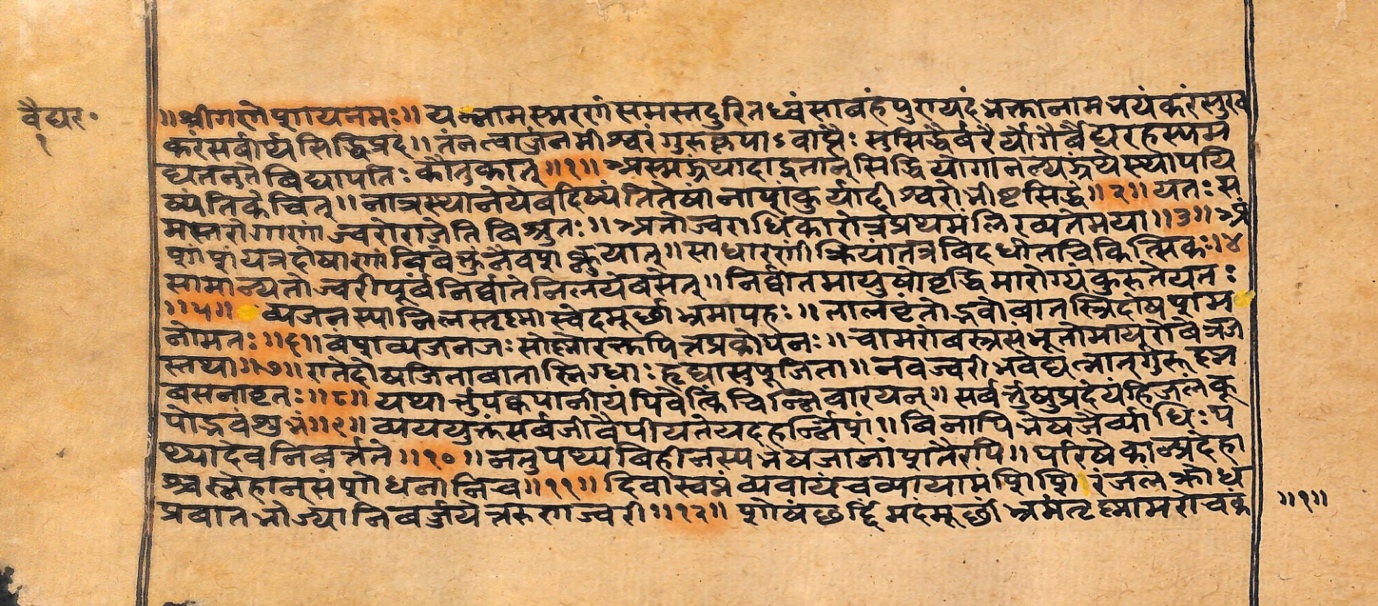 वैद्यर॰
१
॥श्रीगणेशायनमः॥ यन्नामस्मरणंसमस्तदुरितध्वंसावहंपुण्यदंभक्तानामभयंकरंसुख
करंसर्वार्थसिद्धिप्रदं॥ तंनत्वार्जनमीश्वरंगुरुकृपाऽवाप्तैः सुसिद्धैर्वरैर्योगैर्वैद्यरहस्यम
द्यतनुतेविद्यापतिः कौतुकात्॥१॥ अस्मद्ग्रंथादाहृतान्सिद्धियोगानन्यग्रंथेस्थापयि
ष्यंतिकेचित्॥ नाम्नस्थानेयेवदिष्यंतितेषांनाशंकुर्यादीश्वरोभीष्टसिद्धेः॥२॥ यतः स
मस्तरोगाणांज्वरोराजेतिविश्रुतः॥ अतोज्वराधिकारोत्रप्रथमंलिख्यतेमया॥३॥ अं
शांशंयत्रदोषाणांविवेक्तुंनैवशक्नुयात्॥ साधारणींक्रियांतत्रविदधीतचिकित्सिकः॥४
सामान्यतोज्वरीपूर्वंनिर्वातंनिलयंवसेत्॥ निर्वातमायुषोवृद्धिमारोग्यंकुरुतेयतः
॥५॥ व्यजनस्यानिलस्तृष्मास्वेदमूर्छाभ्रमापहः॥ तालवृंतोद्भवोवातस्त्रिदोषशम
नोमतः॥६॥ वंशव्यजनजः सोष्मोरक्तपित्तप्रकोपनः॥ चामरोवस्त्रसंभूतोमायूरोवेत्रज
स्तथा॥७॥ एतेदोषजितावातास्निग्धाः हृद्यासुपूजिता॥ नवज्वरीभवेद्यत्नात्गुरूष्म
वसनावृतः॥८॥ यथार्त्तुपक्वपानीयंपिवेत्किंचिन्निवारयन्॥ सर्वर्त्तुषुप्रदेयंहिजलंकू
पोद्भवंशुभं॥९॥ व्यययुक्तंसर्वजीवैपीयतेयदहर्न्निशं॥ विनापिभेषजैर्व्याधिः प
थ्यादेवनिवर्त्तते॥१०॥ नतुपथ्यविहीनस्यभेषजानांशतैरपि॥ परिषेकान्प्रदेहा
श्चस्नेहान्संशोधनानिच॥११॥ दिवास्वप्नंव्यवायंचव्यायामंशिशिरंजलंक्रोध
प्रवातभोज्यानिवर्जयेत्तरुणज्वरी॥१२॥ शोषंछर्द्दिंमदंमूर्छांभ्रमंतृष्मामरोचकं
॥१॥